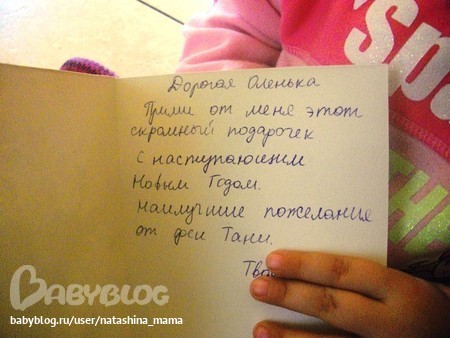 Дорогая Оленька
Прими от меня этот
скромный подарочек
с наступающим
Новым Годом.
Наилучшие пожелания
от феи Тани.
BABYBLOG
babyblog.ru/user/natashina_mama